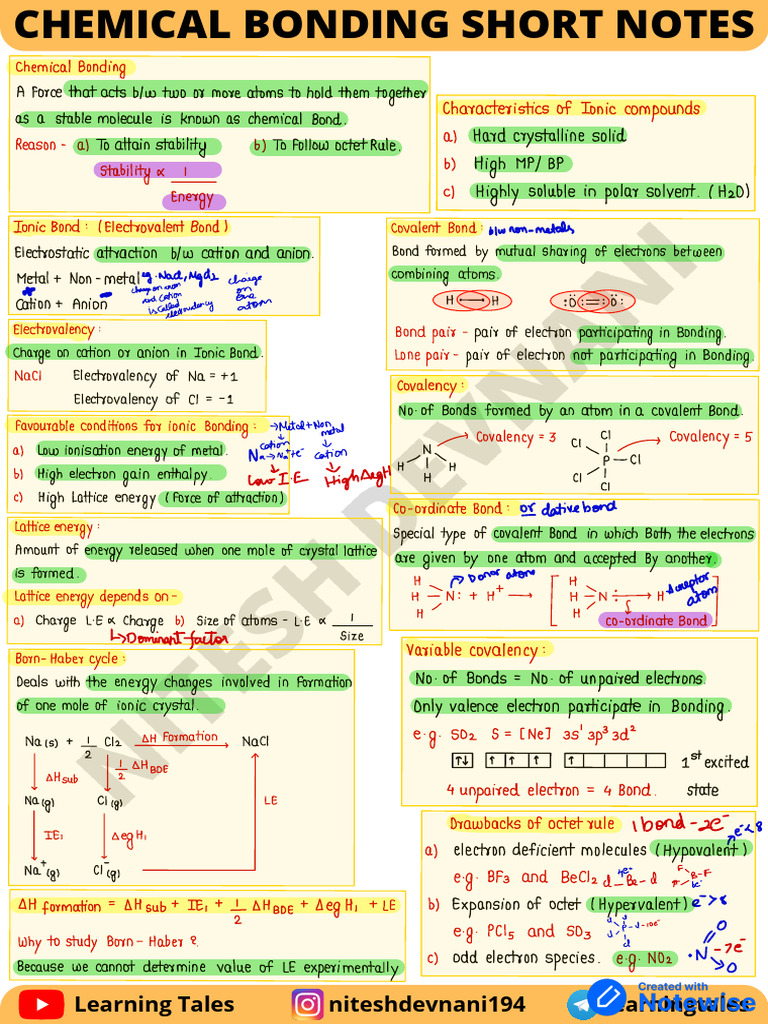 CHEMICAL BONDING SHORT NOTES
Chemical Bonding
A Force that acts b/w two or more atoms to hold them together
as a stable molecule is known as chemical Bond.
Reason - a) To attain stability b) To Follow octet Rule.
Stability ∝ 1
Energy
Characteristics of Ionic compounds
a) Hard crystalline solid
b) High MP/ BP
c) Highly soluble in polar solvent. (H2O)
Ionic Bond : (Electrovalent Bond)
Electrostatic attraction b/w cation and anion.
Metal + Non-metal eg. NaCl, MgCl2
Cation + Anion
charge on anion
and cation
is called
electrovalency
charge
on
one
atom
Electrovalency :
Charge on cation or anion in Ionic Bond.
NaCl Electrovalency of Na = +1
Electrovalency of Cl = -1
Favourable conditions for ionic Bonding :
a) Low ionisation energy of metal.
b) High electron gain enthalpy.
c) High Lattice energy (Force of attraction)
→ Metal + Non
metal
cation
Na → Na⁺ + e⁻
cation
Low I.E
High ΔegH
Lattice energy :
Amount of energy released when one mole of crystal lattice
is formed.
Lattice energy depends on -
a) Charge L.E ∝ Charge b) Size of atoms - L.E ∝ 1
Size
↳ Dominant factor
Born-Haber cycle :
Deals with the energy changes involved in Formation
of one mole of ionic crystal.
Na(s) + 1/2 Cl2 ΔH Formation NaCl
ΔHsub 1/2 ΔHBDE
Na(g) Cl(g) LE
IE1 ΔegH1
Na⁺(g) Cl⁻(g)
ΔH formation = ΔHsub + IE1 + 1/2 ΔHBDE + ΔegH1 + LE
Why to study Born-Haber ?
Because we cannot determine value of LE experimentally
Covalent Bond : b/w non-metals
Bond formed by mutual sharing of electrons between
combining atoms.
H H :O::O:
Bond pair - pair of electron participating in Bonding.
Lone pair - pair of electron not participating in Bonding.
Covalency :
No. of Bonds formed by an atom in a covalent Bond.
N → Covalency = 3
H H H
Cl Cl P Cl Cl Cl → Covalency = 5
Co-ordinate Bond : or dative bond
Special type of covalent Bond in which Both the electrons
are given by one atom and accepted By another.
Donor atom
H H H N: + H⁺ → [ H H H N : → H ]
Acceptor
atom
co-ordinate Bond
Variable covalency :
No. of Bonds = No. of unpaired electrons.
Only valence electron participate in Bonding.
e.g. SO2 S = [Ne] 3s¹ 3p³ 3d²
↑↓ ↑ ↑ ↑ ↑ 1st excited
4 unpaired electron = 4 Bond. state
Drawbacks of octet rule 1 bond - 2e⁻
e⁻ < 8
a) electron deficient molecules (Hypovalent)
e.g. BF3 and BeCl2 4e⁻ cl - Be - cl F F B-F 6e⁻
b) Expansion of octet (Hypervalent) e⁻ > 8
e.g. PCl5 and SO3 cl cl P - cl -10e⁻ cl
c) odd electron species. e.g. NO2 ·N O → O - 7e⁻
NITESH DEVNANI
Learning Tales
niteshdevnani194
Learningtales
Created with
Notewise